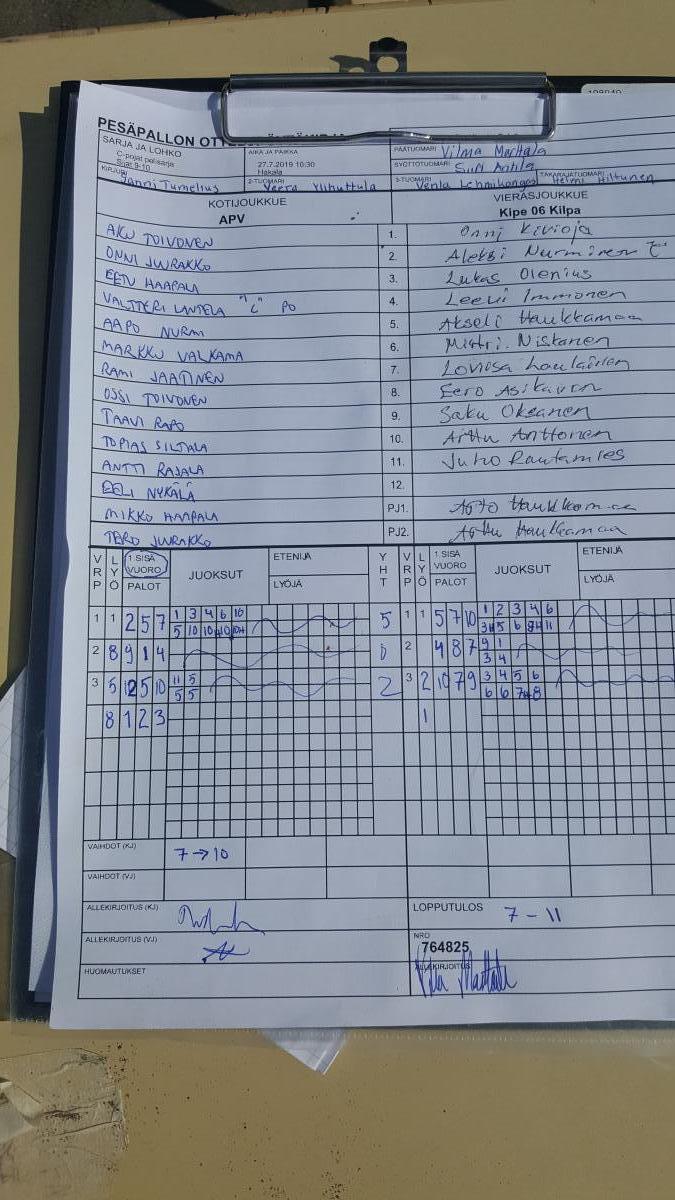 108049
PESÄPALLON
SARJA JA LOHKO
C-pojat polisarja
Sijat 9-10
AIKA JA PAIKKA
27.7.2019 10:30
Hakala
PÄÄTUOMARI Vilma Marttala
SYÖTTÖTUOMARI Suvi Anttila
KIRJURI Janni Tumelius
2-TUOMARI Veera Ylihuttula
3-TUOMARI Venla Lehmikangas
TAKARAJATUOMARI Helmi Hiltunen
KOTIJOUKKUE
APV
VIERASJOUKKUE
Kipe 06 Kilpa
AKU TOIVONEN 1. Onni Kivioja
ONNI JUURAKKO 2. Aleksi Nurminen "C"
EETU HAAPALA 3. Lukas Olenius
VALTTERI LANTELA "C" PO 4. Leevi Immonen
AAPO NURMI 5. Akseli Haukkamaa
MARKKU VALKAMA 6. Niskanen
RAMI JAATINEN 7. Loviisa Laulainen
OSSI TOIVONEN 8. Eero Asikainen
TAAVI RAPO 9. Saku Oksanen
TOPIAS SILTALA 10. Arttu Anttonen
ANTTI RAJALA 11. Juho Rautamies
EELI NYKÄLÄ 12.
MIKKO HAAPALA PJ1. Arto Haukkamaa
TERO JUURAKKO PJ2. Arttu Haukkamaa
VRP LYÖ 1.SISÄ VUORO PALOT JUOKSUT ETENIJÄ LYÖJÄ YHT VRP LYÖ 1.SISÄ VUORO PALOT JUOKSUT ETENIJÄ LYÖJÄ
1 1 2 5 7 1 3 4 6 10 5 1 1 5 7 10 1 2 3 4 6
5 10 10 5 6
2 8 9 1 4 0 2 4 8 7 9 1
3 4
3 5 12 5 10 11 5 2 3 2 10 7 9 3 4 5 6
5 5 6 6 8
8 1 2 3 1
VAIHDOT (KJ) 7→10
VAIHDOT (VJ)
ALLEKIRJOITUS (KJ)
LOPPUTULOS 7 - 11
ALLEKIRJOITUS (VJ)
NRO
764825
HUOMAUTUKSET
ALLEKIRJOITUS Vilma Marttala